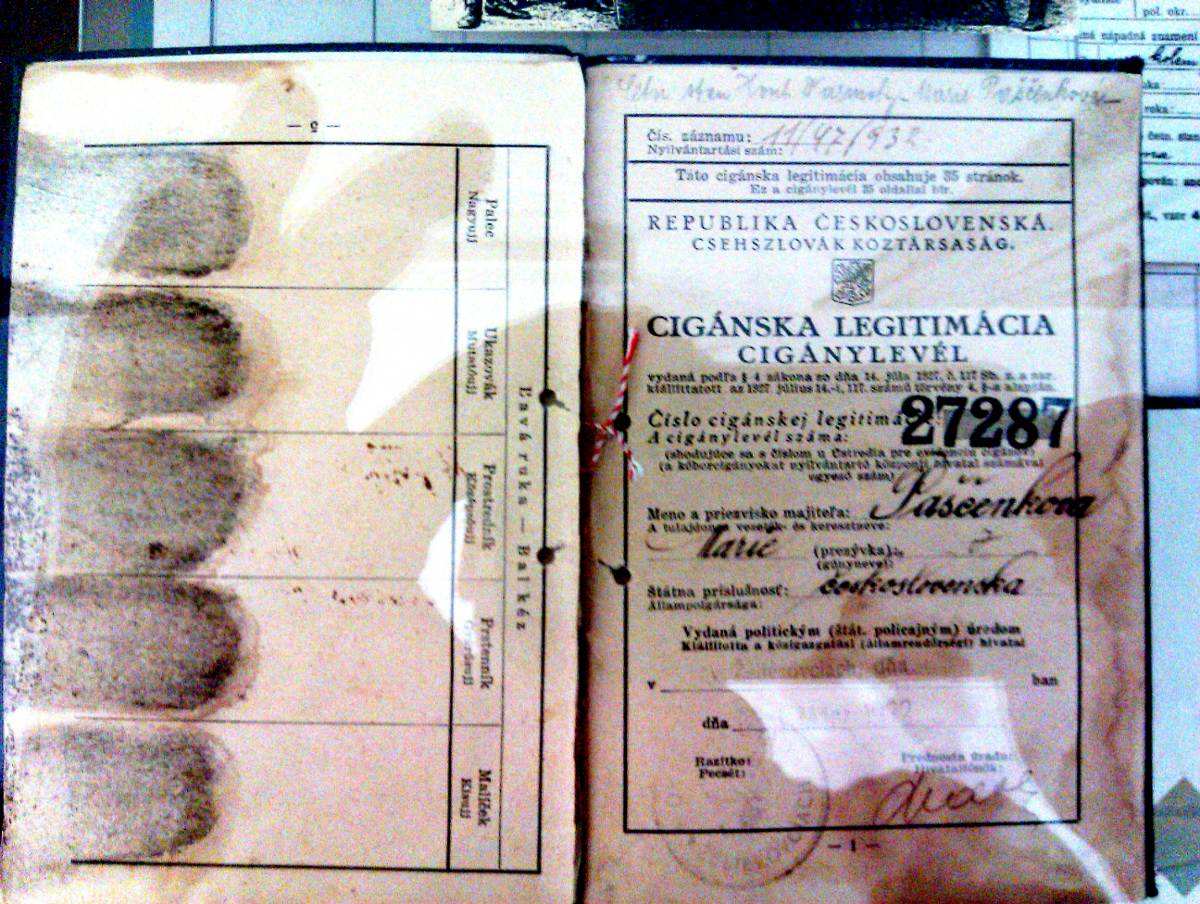 — 5 —
Palec
Nagyujj
Ukazovák
Mutatóujj
Prostredník
Középsőujj
Prstenník
Gyűrűsujj
Malíček
Kisujj
Ľavá ruka — Bal kéz
Marie Paščenková
Čís. záznamu: 11/47/932
Nyilvántartási szám:
Táto cigánska legitimácia obsahuje 35 stránok.
Ez a cigánylevél 35 oldallal bir.
REPUBLIKA ČESKOSLOVENSKÁ.
CSEHSZLOVÁK KÖZTÁRSASÁG.
CIGÁNSKA LEGITIMÁCIA
CIGÁNYLEVÉL
vydaná podľa § 4 zákona zo dňa 14. júla 1927, č. 117 Sb. z. a nar.
kiállittatott az 1927 július 14.-i, 117. számú törvény 4. §-a alapján.
Číslo cigánskej legitimácie: 27287
A cigánylevél száma:
(shodujúce sa s číslom u Ústredia pre evidenciu cigánov)
(a kóborcigányokat nyilvántartó központi hivatal számával
egyező szám)
Meno a priezvisko majiteľa: Paščenková
A tulajdonos vezeték- és keresztneve:
Marie (prezývka):
(gúnyneve):
Štátna príslušnosť: československá
Állampolgársága:
Vydaná politickým (štát. policajným) úredom
Kiállította a közigazgatási (államrendőrségi) hivatal
dňa
v ban
dňa
Razítko: Prednosta úradu:
Pecsét: Hivatalfőnök:
— 1 —
pol. okr.
nápadná znamení
kolem
roka: